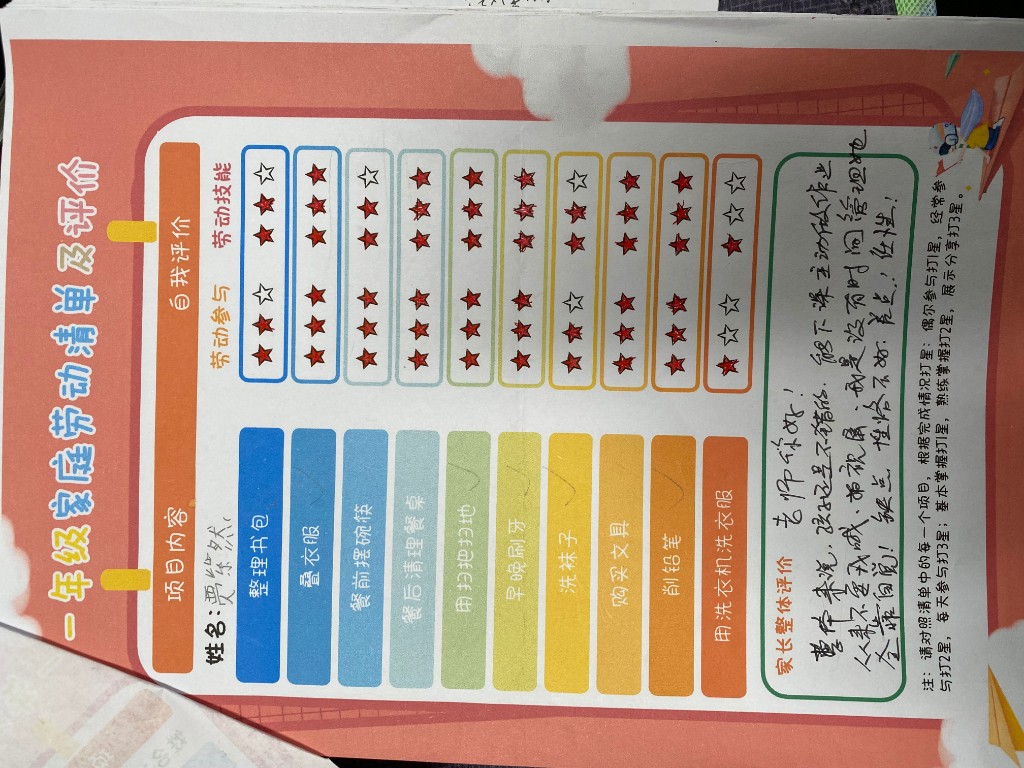 一年级家庭劳动清单及评价
项目内容 自我评价
姓名：贾紫然 劳动参与 劳动技能
整理书包
叠衣服
餐前摆碗筷
餐后清理餐桌
用扫把扫地
早晚刷牙
洗袜子
购买文具
削铅笔
用洗衣机洗衣服
家长整体评价 老师你好！
整体来说，孩子还是不错的，能下课主动做作业
从来不迟到，我是没有时间管理她
全靠自觉！缺点性格不好，急点！任性！
注：请对照清单中的每一个项目，根据完成情况打星：偶尔参与打1星，经常参
与打2星，每天参与打3星；基本掌握打1星，熟练掌握打2星，展示分享打3星。